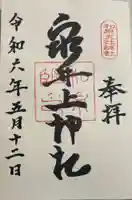 奉拝
泉井上神社
令和六年五月十二日